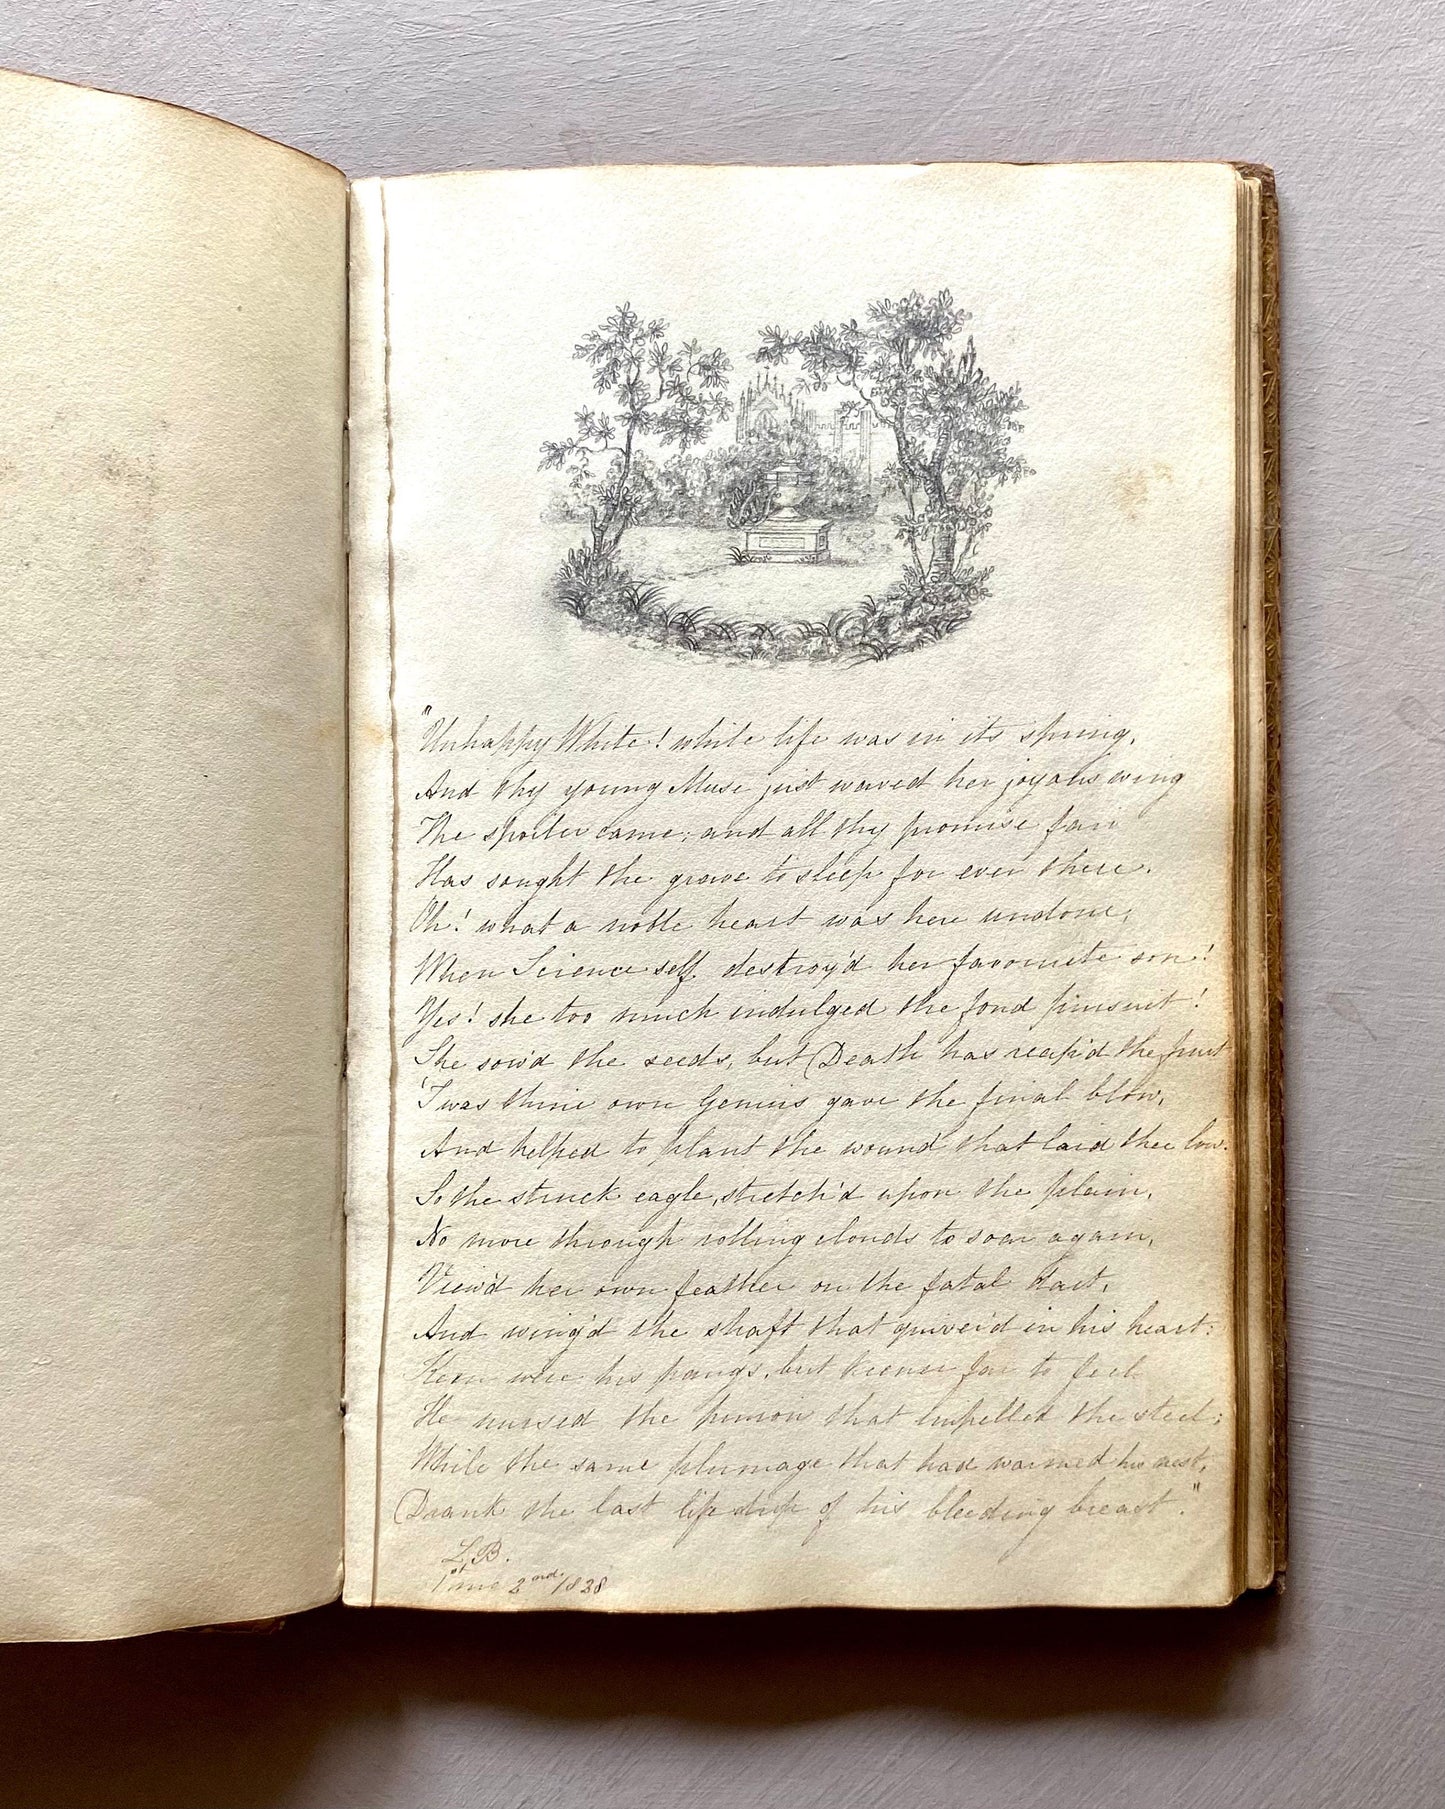 "Unhappy White! while life was in its spring,
And thy young Muse just waved her joyous wing
The spoiler came; and all thy promise fair
Has sought the grave to sleep for ever there.
Oh! what a noble heart was here undone,
When Science self destroy'd her favourite son!
Yes! she too much indulged the fond pursuit!
She sow'd the seeds, but Death has reap'd the fruit
'Twas thine own Genius gave the final blow,
And helped to plant the wound that laid thee low.
So the struck eagle, stretch'd upon the plain,
No more through rolling clouds to soar again,
View'd her own feather on the fatal dart,
And wing'd the shaft that quiver'd in his heart:
Keen were his pangs, but keener far to feel
He nursed the pinion that impelled the steel;
While the same plumage that had warmed his nest,
Drank the last life drop of his bleeding breast."
L.B.
2nd. 1828